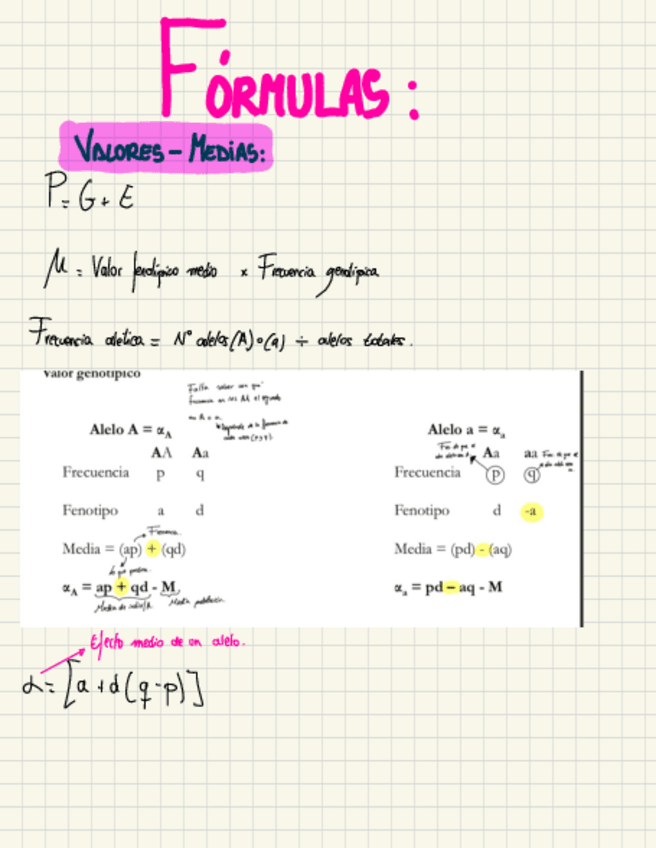 FÓRMULAS:
VALORES - MEDIAS:
P = G + E
M = Valor fenotípico medio x Frecuencia genotípica
Frecuencia alélica = Nº alelos (A) o (a) ÷ alelos totales.
valor genotípico
Falta saber con qué
frecuencia
Alelo A = αA
AA Aa
Frecuencia p q
Fenotipo a d
Frecuencia
Media = (ap) + (qd)
αA = ap + qd - M
Media de Media población
Alelo a = αa
Aa aa
Frecuencia p q
Fenotipo d -a
Media = (pd) - (aq)
αa = pd – aq - M
Efecto medio de un alelo.
α = [a + d (q - p)]